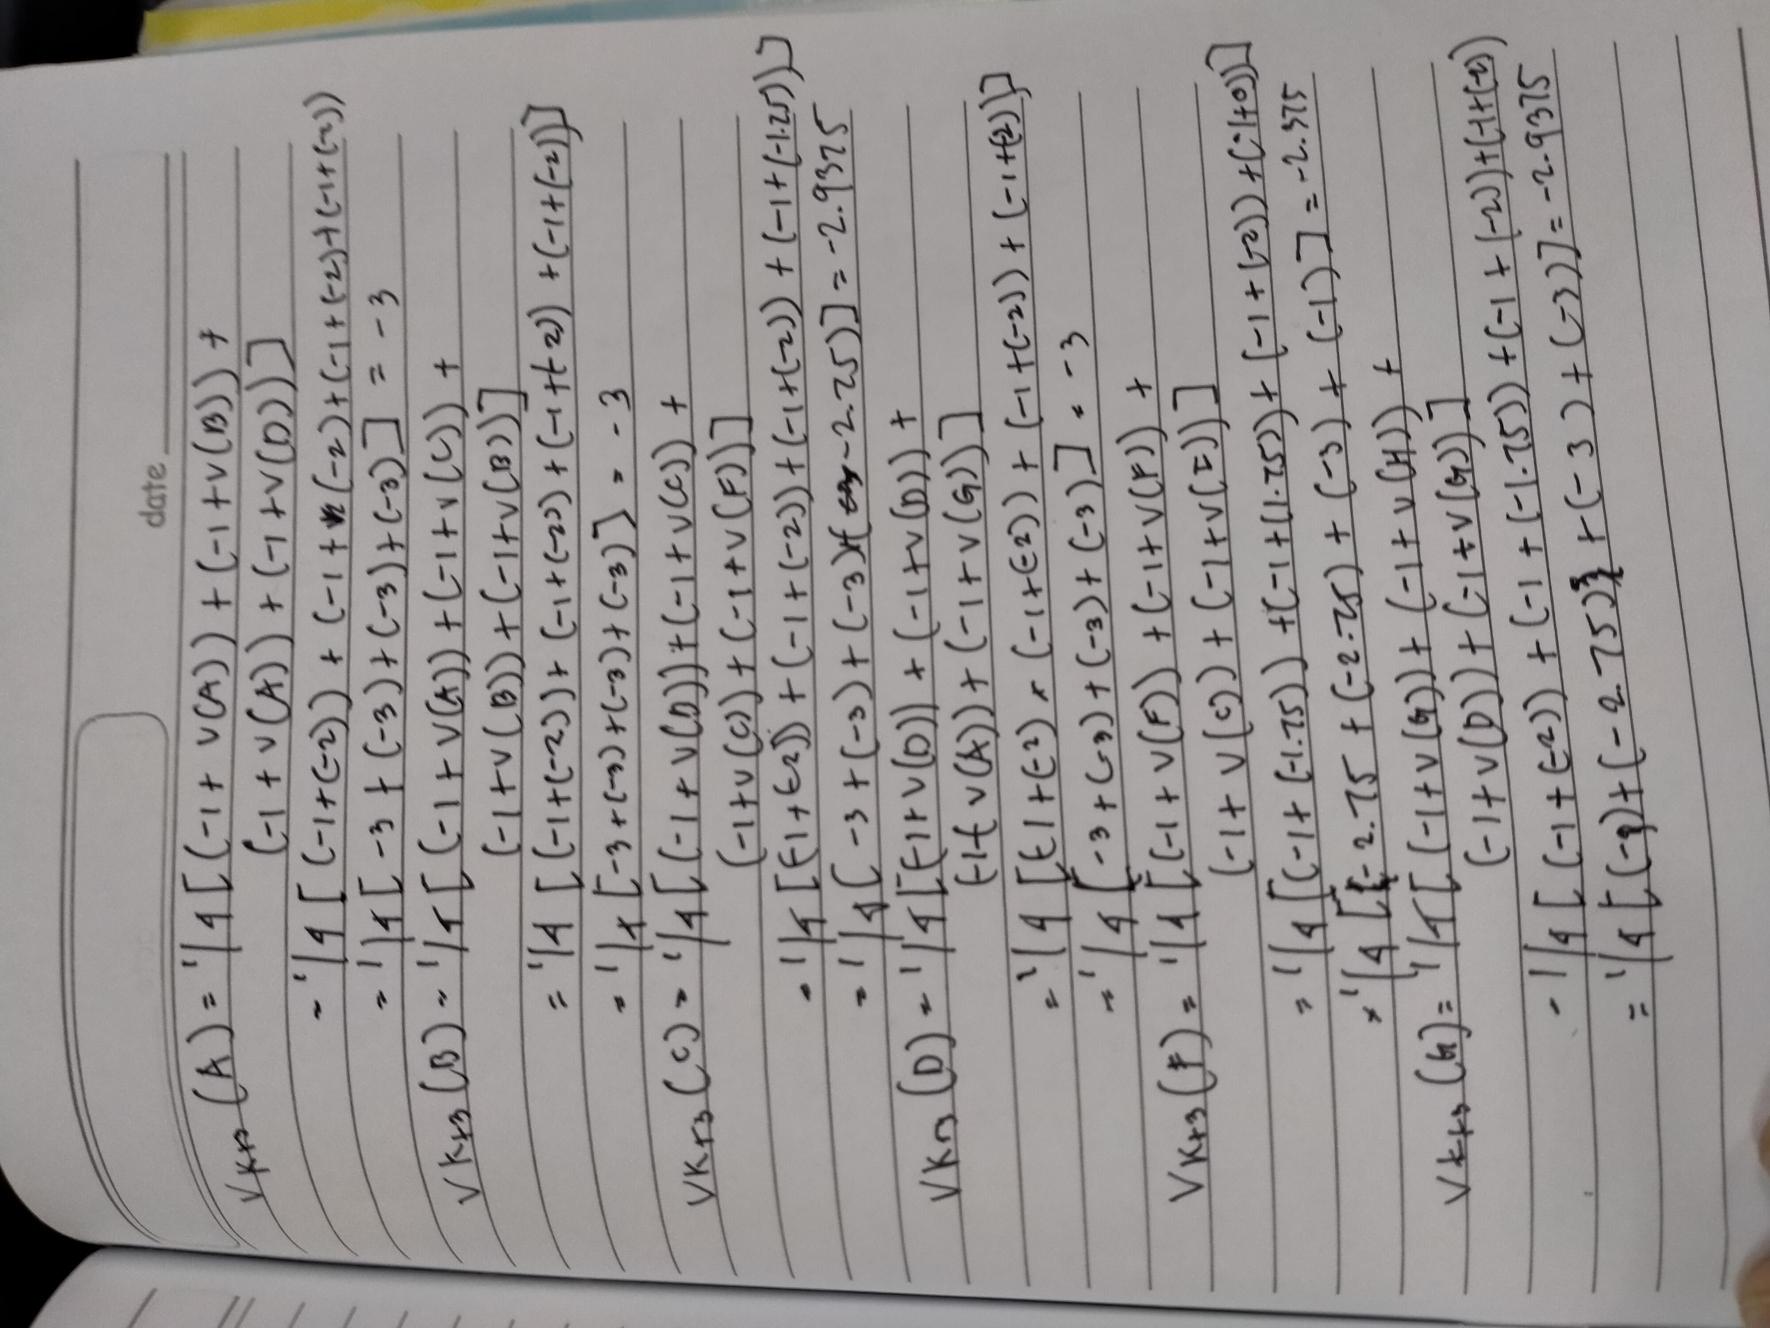 date
Vk+3 (A) = 1/4 [(-1 + V(A)) + (-1 + V(B)) +
(-1 + V(A)) + (-1 + V(D))]
= 1/4 [(-1+(-2)) + (-1 + (-2) + (-1 + (-2) + (-1+(-2))
= 1/4 [-3 + (-3) + (-3) + (-3)] = -3
Vk+3 (B) = 1/4 [(-1 + V(A)) + (-1 + V(C)) +
(-1 + V(B)) + (-1 + V(B))]
= 1/4 [(-1+(-2)) + (-1+(-2)) + (-1+(-2)) + (-1+(-2))]
= 1/4 [-3 + (-3) + (-3) + (-3)] = -3
Vk+3 (C) = 1/4 [(-1 + V(D)) + (-1 + V(C)) +
(-1 + V(C)) + (-1 + V(F))]
= 1/4 [(-1+(-2)) + (-1+(-2)) + (-1+(-2)) + (-1+(-1.25))]
= 1/4 [-3 + (-3) + (-3) + (-2.75)] = -2.9375
Vk+3 (D) = 1/4 [(-1+V(D)) + (-1+V(D)) +
(-1+V(A)) + (-1+V(G))]
= 1/4 [(-1+(-2) + (-1+(-2)) + (-1+(-2)) + (-1+(-2))]
= 1/4 [-3 + (-3) + (-3) + (-3)] = -3
Vk+3 (F) = 1/4 [(-1 + V(F)) + (-1 + V(F)) +
(-1 + V(C)) + (-1 + V(E))]
= 1/4 [(-1 + (-1.75)) + (-1 + (1.75)) + (-1 + (-2)) + (-1+0))]
= 1/4 [(-2.75 + (-2.75) + (-3) + (-1)] = -2.375
Vk+3 (G) = 1/4 [(-1 + V(G)) + (-1 + V(H)) +
(-1 + V(D)) + (-1 + V(G))]
= 1/4 [(-1 + (-2)) + (-1 + (-1.75)) + (-1 + (-2)) + (-1+(-2))
= 1/4 [(-3) + (-2.75) + (-3) + (-3)] = -2.9375